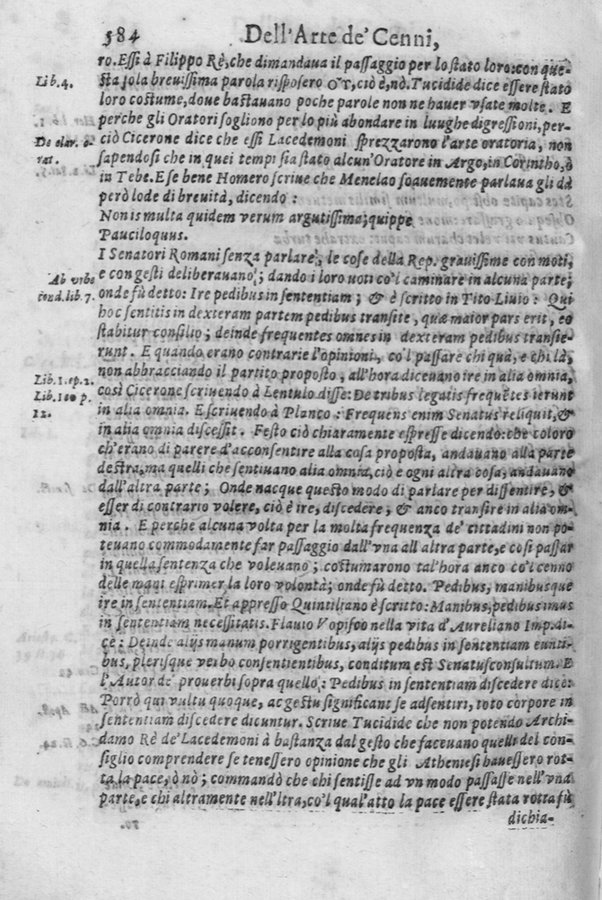 584 Dell'Arte de' Cenni,
ro. Essi à Filippo Rè, che dimandaua il passaggio per lo stato loro: con que-
Lib. 4. sta sola breuissima parola risposero OY, ciò è, nò. Tucidide dice essere stato
loro costume, doue bastauano poche parole non ne hauer vsate molte. E
perche gli Oratori sogliono per lo più abondare in luughe digressioni, per-
De clar. o- ciò Cicerone dice che essi Lacedemoni sprezzarono l'arte oratoria, non
rat. sapendosi che in quei tempi sia stato alcun'Oratore in Argo, in Corintho, ò
in Tebe. E se bene Homero scriue che Menelao soauemente parlaua gli dà
però lode di breuità, dicendo:
Non is multa quidem verum argutissima; quippe
Pauciloquus.
I Senatori Romani senza parlare, le cose della Rep. grauissime con moti,
Ab vrbe e con gesti deliberauano; dando i loro uoti co'l caminare in alcuna parte;
cond. lib. 7. onde fù detto: Ire pedibus in sententiam; & è scritto in Tito Liuio: Qui
hoc sentitis in dexteram partem pedibus transite, quæ maior pars erit, eo
stabitur consilio; deinde frequentes omnes in dexteram pedibus transie-
runt. E quando erano contrarie l'opinioni, co'l passare chi quà, e chi là,
Lib. 1. ep. 2. non abbracciando il partito proposto, all'hora diceuano ire in alia omnia,
Lib. 10 p. così Cicerone scriuendo à Lentulo disse: De tribus legatis frequẽtes ierunt
12. in alia omnia. E scriuendo à Planco: Frequens enim Senatus reliquit, &
in alia omnia discessit. Festo ciò chiaramente espresse dicendo: che coloro
ch'erano di parere d'acconsentire alla cosa proposta, andauano alla parte
destra, ma quelli che sentiuano alia omnia, ciò e ogni altra cosa, andauano
dall'altra parte; Onde nacque questo modo di parlare per dissentire, &
esser di contrario volere, ciò è ire, discedere; & anco transire in alia om-
nia. E perche alcuna volta per la molta frequenza de' cittadini non po-
teuano commodamente far passaggio dall'vna all altra parte, e così passar
in quella sentenza che voleuano; costumarono tal'hora anco co'l cenno
delle mani esprimer la loro volontà; onde fù detto. Pedibus, manibusque
ire in sententiam. Et appresso Quintiliano è scritto: Manibus, pedibus imus
in sententiam necessitatis. Flauio Vopisco nella vita d'Aureliano Imp. di-
ce: Deinde alijs manum porrigentibus, alijs pedibus in sententiam eunti-
bus, plerisque verbo consentientibus, conditum est Senatusconsultum. E
l'Autor de' prouerbi sopra quello: Pedibus in sententiam discedere dice:
Porrò qui vultu quoque, ac gestu significant se adsentiri, toto corpore in
sententiam discedere dicuntur. Scriue Tucidide che non potendo Archi-
damo Rè de' Lacedemoni à bastanza dal gesto che faceuano quelli del con-
siglio comprendere se tenessero opinione che gli Atheniesi hauessero rot-
ta la pace, ò nò; commandò che chi sentisse ad vn modo passasse nell'vna
parte, e chi altramente nell'ltra, co'l qual'atto la pace essere stata rotta fù
dichia-